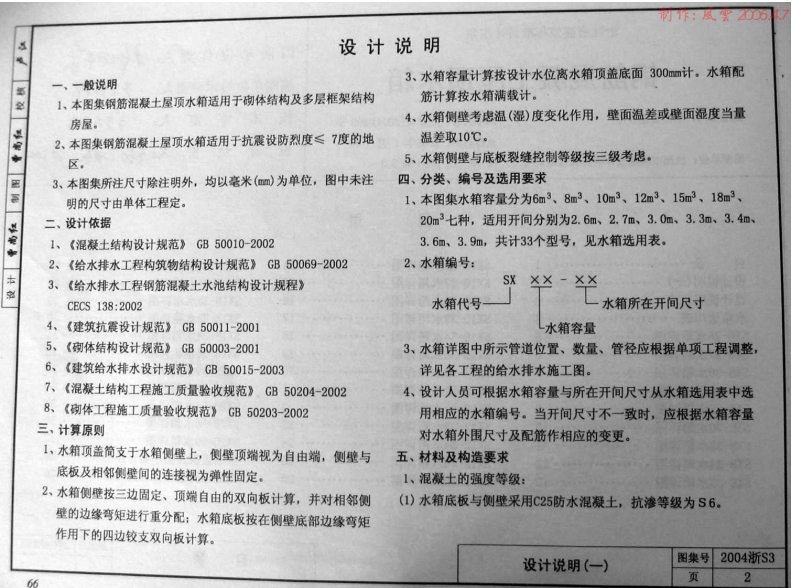 制作:风雪 2006.4.7
设计说明
一、一般说明
1、本图集钢筋混凝土屋顶水箱适用于砌体结构及多层框架结构
房屋。
2、本图集钢筋混凝土屋顶水箱适用于抗震设防烈度≤ 7度的地
区。
3、本图集所注尺寸除注明外，均以毫米(mm)为单位，图中未注
明的尺寸由单体工程定。
二、设计依据
1、《混凝土结构设计规范》 GB 50010-2002
2、《给水排水工程构筑物结构设计规范》 GB 50069-2002
3、《给水排水工程钢筋混凝土水池结构设计规程》
CECS 138:2002
4、《建筑抗震设计规范》 GB 50011-2001
5、《砌体结构设计规范》 GB 50003-2001
6、《建筑给水排水设计规范》 GB 50015-2003
7、《混凝土结构工程施工质量验收规范》 GB 50204-2002
8、《砌体工程施工质量验收规范》 GB 50203-2002
三、计算原则
1、水箱顶盖简支于水箱侧壁上，侧壁顶端视为自由端，侧壁与
底板及相邻侧壁间的连接视为弹性固定。
2、水箱侧壁按三边固定、顶端自由的双向板计算，并对相邻侧
壁的边缘弯矩进行重分配；水箱底板按在侧壁底部边缘弯矩
作用下的四边铰支双向板计算。
3、水箱容量计算按设计水位离水箱顶盖底面 300mm计。水箱配
筋计算按水箱满载计。
4、水箱侧壁考虑温(湿)度变化作用，壁面温差或壁面湿度当量
温差取10℃。
5、水箱侧壁与底板裂缝控制等级按三级考虑。
四、分类、编号及选用要求
1、本图集水箱容量分为6m³、8m³、10m³、12m³、15m³、18m³、
20m³七种，适用开间分别为2.6m、2.7m、3.0m、3.3m、3.4m、
3.6m、3.9m，共计33个型号，见水箱选用表。
2、水箱编号：
SX ×× - ××
水箱代号 水箱所在开间尺寸
水箱容量
3、水箱详图中所示管道位置、数量、管径应根据单项工程调整，
详见各工程的给水排水施工图。
4、设计人员可根据水箱容量与所在开间尺寸从水箱选用表中选
用相应的水箱编号。当开间尺寸不一致时，应根据水箱容量
对水箱外围尺寸及配筋作相应的变更。
五、材料及构造要求
1、混凝土的强度等级：
(1) 水箱底板与侧壁采用C25防水混凝土，抗渗等级为S6。
校核
制图
设计
设计说明(一)
图集号 2004浙S3
页 2
66